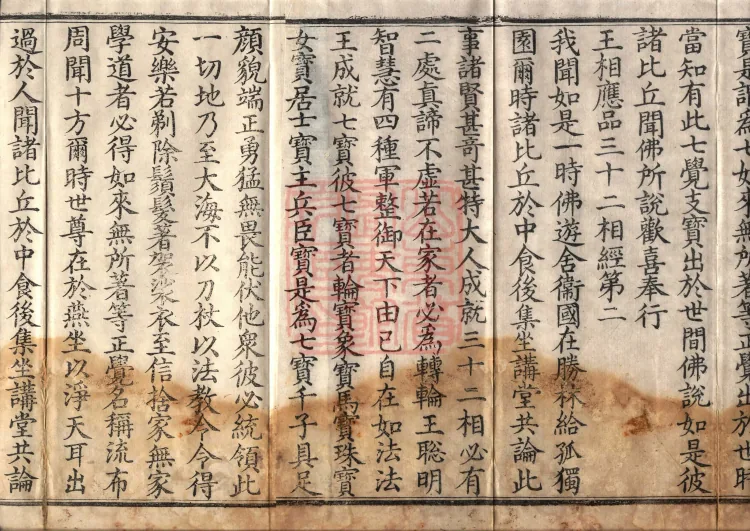 寶是謂為七如來無所著等正覺出於世時
當知有此七覺支寶出於世間佛說如是彼
諸比丘聞佛所說歡喜奉行
王相應品三十二相經第二
我聞如是一時佛遊舍衞國在勝林給孤獨
園爾時諸比丘於中食後集坐講堂共論此
事諸賢甚哥甚特大人成就三十二相必有
二處真諦不虛若在家者必為轉輪王聡明
智慧有四種軍整御天下由己自在如法法
王成就七寶彼七寶者輪寶象寶馬寶珠寶
女寶居士寶主兵臣寶是為七寶千子具足
顔貌端正勇猛無畏能伏他衆彼必統領此
一切地乃至大海不以刀杖以法教令令得
安樂若剃除鬚髮著袈裟衣至信捨家無家
學道者必得如來無所著等正覺名稱流布
周聞十方爾時世尊在於燕坐以淨天耳出
過於人聞諸比丘於中食後集坐講堂共論